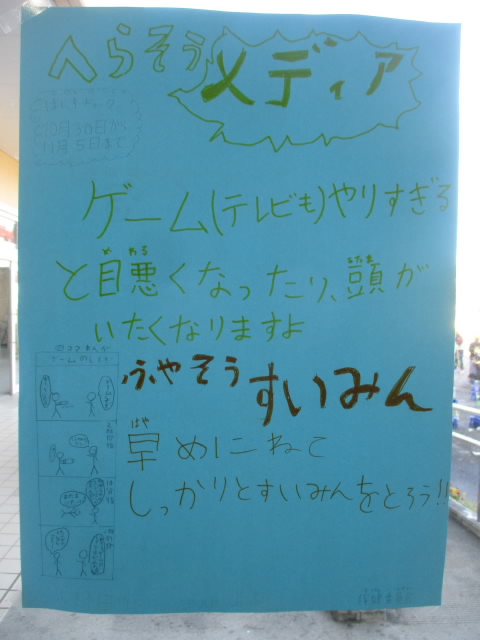 へらそう
メディア
10月30日から
11月5日まで
ゲーム(テレビも)やりすぎる
と目悪くなったり、頭が
いたくなりますよ
ふやそう
すいみん
早めにねて
しっかりとすいみんをとろう!!